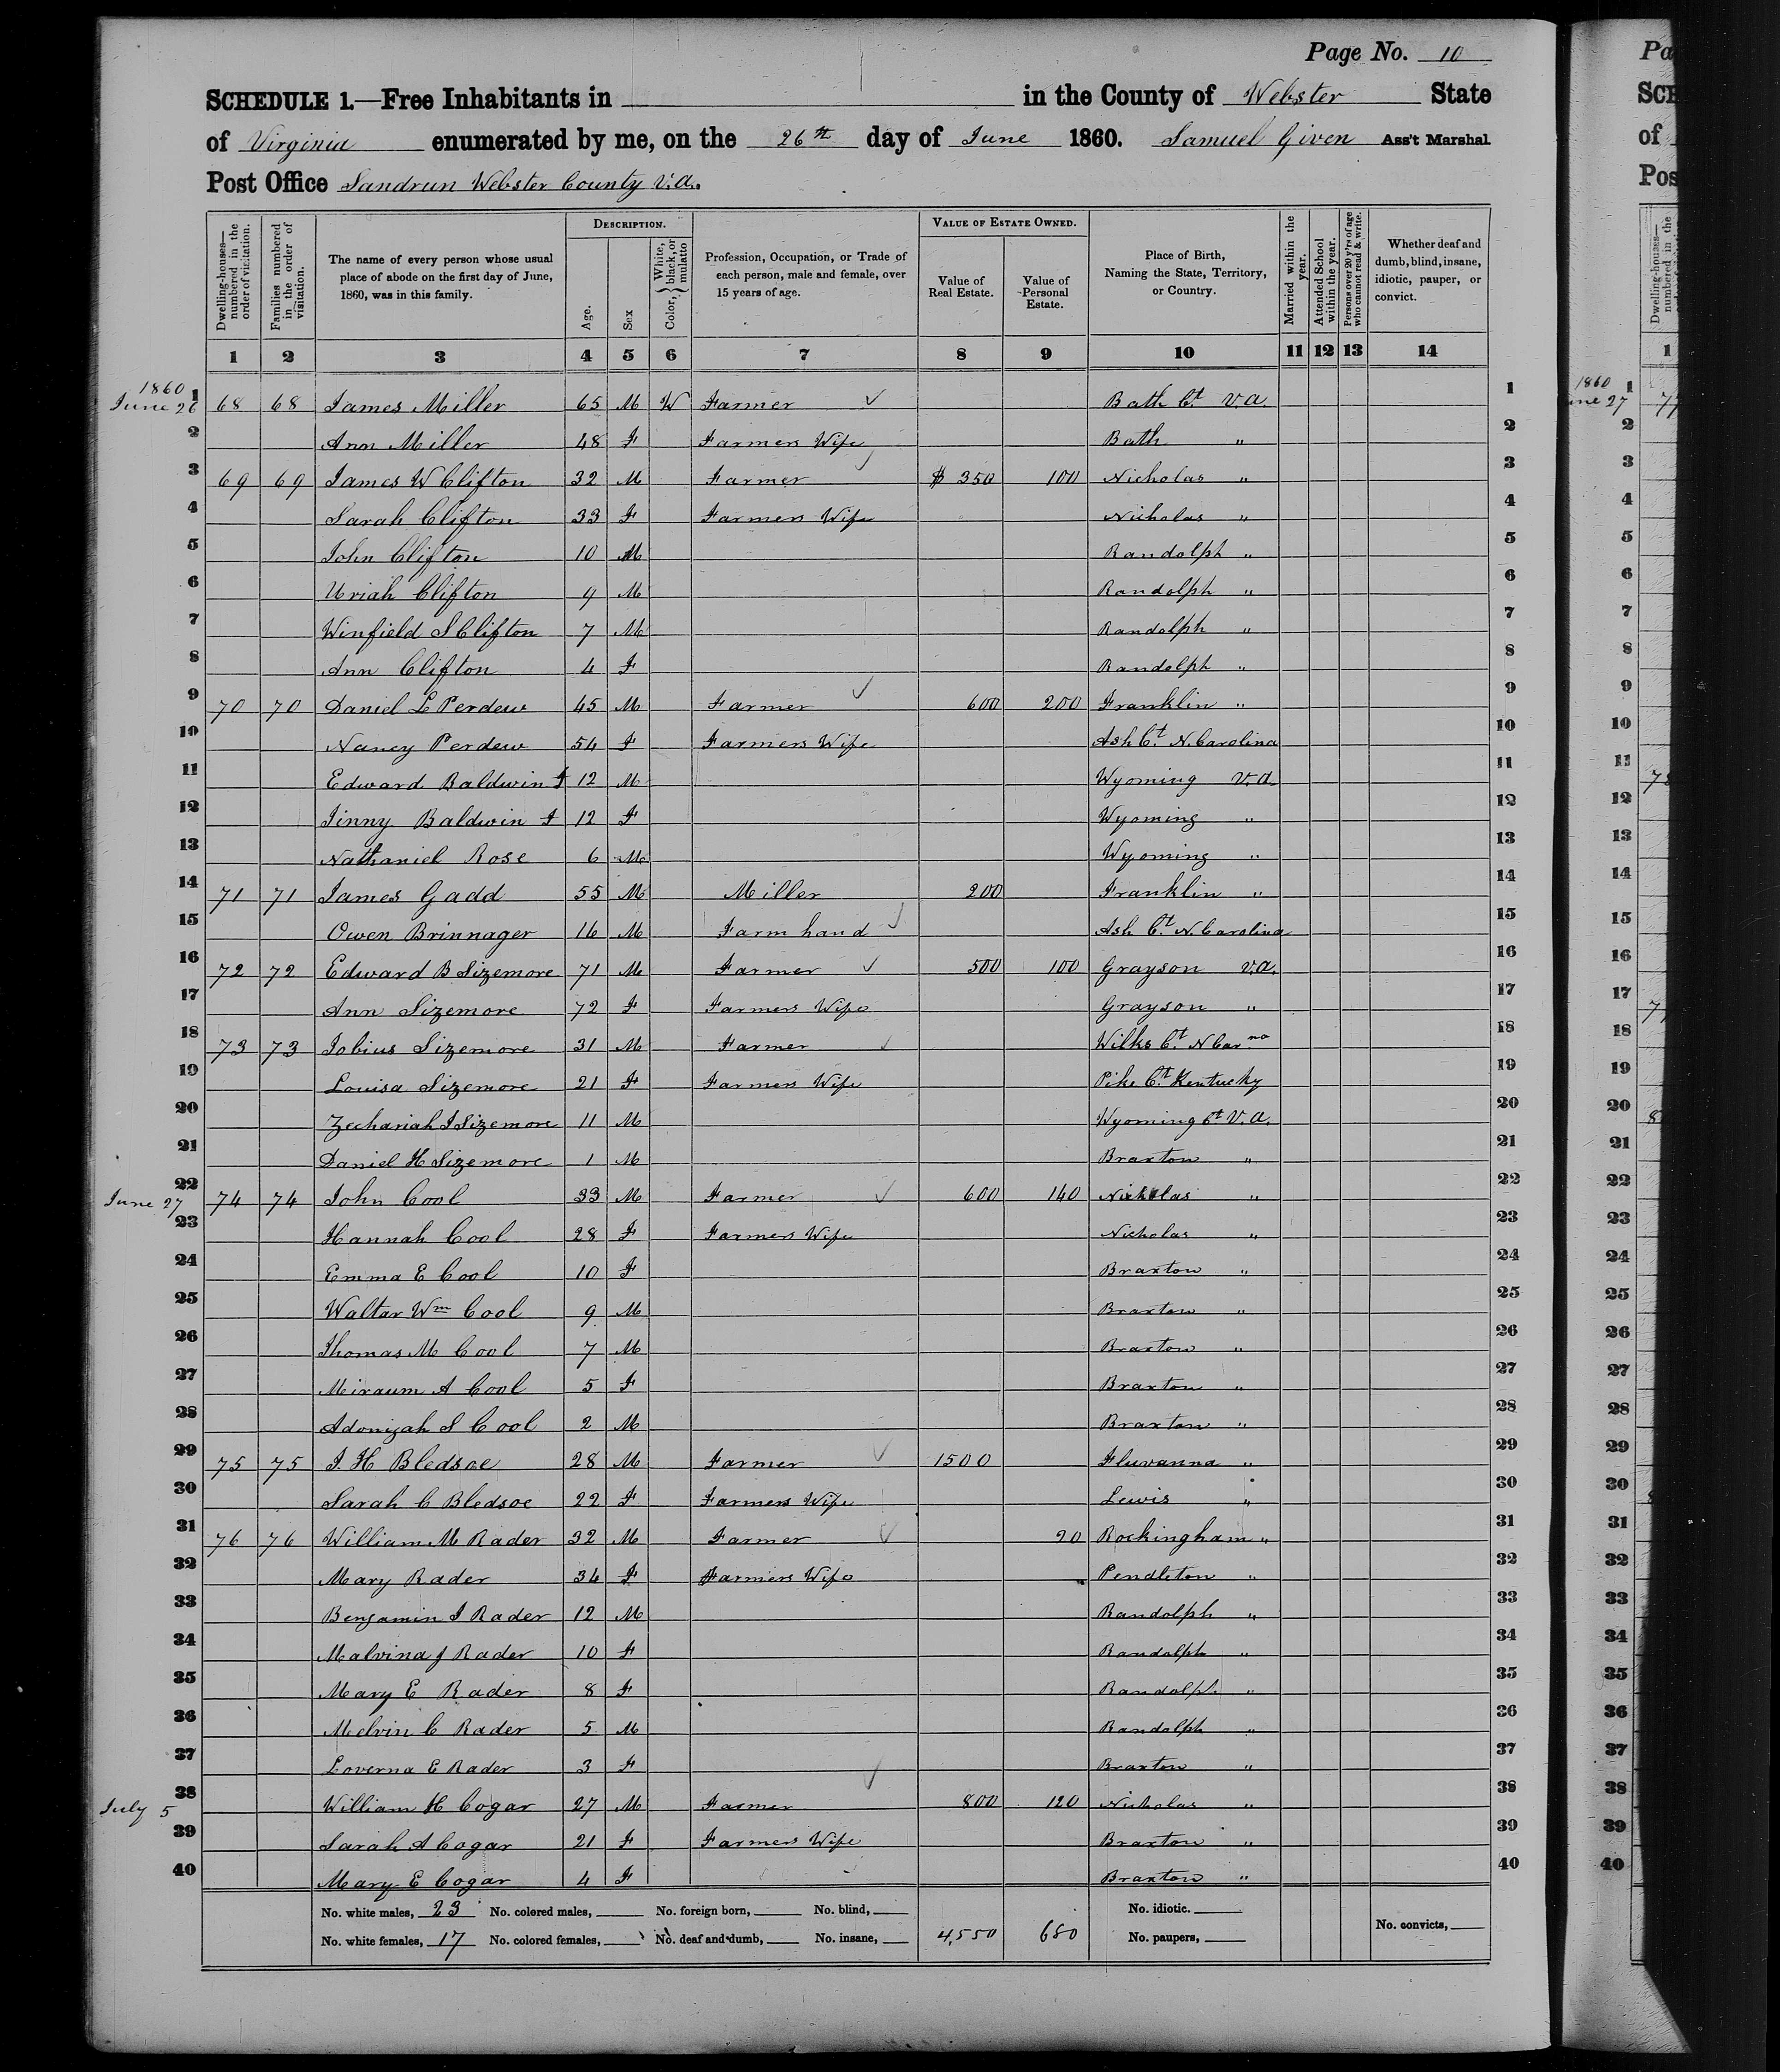 Page No. 10
SCHEDULE 1.—Free Inhabitants in in the County of Webster State
of Virginia enumerated by me, on the 26th day of June 1860. Samuel Given Ass't Marshal
Post Office Sandrun Webster County V.a.
Dwelling-houses—numbered in the order of visitation. Families numbered in the order of visitation. The name of every person whose usual place of abode on the first day of June, 1860, was in this family. DESCRIPTION. Age. Sex Color, White, black, or mulatto Profession, Occupation, or Trade of each person, male and female, over 15 years of age. VALUE OF ESTATE OWNED. Value of Real Estate. Value of Personal Estate. Place of Birth, Naming the State, Territory, or Country. Married within the year. Attended School within the year. Persons over 20 y'rs of age who cannot read & write. Whether deaf and dumb, blind, insane, idiotic, pauper, or convict.
1 2 3 4 5 6 7 8 9 10 11 12 13 14
1860 June 26 1 68 68 James Miller 65 M W Farmer Bath Ct V.a. 1
2 Ann Miller 48 F Farmers Wife Bath " 2
3 69 69 James W Clifton 32 M Farmer $ 350 100 Nicholas " 3
4 Sarah Clifton 33 F Farmers Wife Nicholas " 4
5 John Clifton 10 M Randolph " 5
6 Uriah Clifton 9 M Randolph " 6
7 Winfield S Clifton 7 M Randolph " 7
8 Ann Clifton 4 F Randolph " 8
9 70 70 Daniel L Perdew 45 M Farmer 600 200 Franklin " 9
10 Nancy Perdew 54 F Farmers Wife Ash Ct. N. Carolina 10
11 Edward Baldwin 12 M Wyoming V.a. 11
12 Jinny Baldwin 12 F Wyoming " 12
13 Nathaniel Rose 6 M Wyoming " 13
14 71 71 James Gadd 55 M Miller 200 Franklin " 14
15 Owen Brinnager 16 M Farm hand Ash Ct. N. Carolina 15
16 72 72 Edward B Sizemore 71 M Farmer 500 100 Grayson V.a. 16
17 Ann Sizemore 72 F Farmers Wife Grayson " 17
18 73 73 Tobius Sizemore 31 M Farmer Wilks Ct. N Car na 18
19 Louisa Sizemore 21 F Farmers Wife Pike Ct. Kentucky 19
20 Zechariah J Sizemore 11 M Wyoming Ct V.a. 20
21 Daniel H Sizemore 1 M Braxton " 21
June 27 22 74 74 John Cool 33 M Farmer 600 140 Nicholas " 22
23 Hannah Cool 28 F Farmers Wife Nicholas " 23
24 Emma E Cool 10 F Braxton " 24
25 Waltar Wm Cool 9 M Braxton " 25
26 Thomas M Cool 7 M Braxton " 26
27 Miraum A Cool 5 F Braxton " 27
28 Adonijah S Cool 2 M Braxton " 28
29 75 75 J. H Bledsoe 28 M Farmer 1500 Fluvanna " 29
30 Sarah C Bledsoe 22 F Farmers Wife Lewis " 30
31 76 76 William M Rader 32 M Farmer 20 Rockingham " 31
32 Mary Rader 34 F Farmers Wife Pendleton " 32
33 Benjamin J Rader 12 M Randolph " 33
34 Malvina J Rader 10 F Randolph " 34
35 Mary E Rader 8 F Randolph " 35
36 Melvin C Rader 5 M Randolph " 36
37 Loverna E Rader 3 F Braxton " 37
July 5 38 William H Cogar 27 M Farmer 800 120 Nicholas " 38
39 Sarah A Cogar 21 F Farmers Wife Braxton " 39
40 Mary E Cogar 4 F Braxton " 40
No. white males, 23 No. colored males, No. foreign born, No. blind, 4,550 680 No. idiotic. No. convicts,
No. white females, 17 No. colored females, No. deaf and dumb, No. insane, No. paupers,